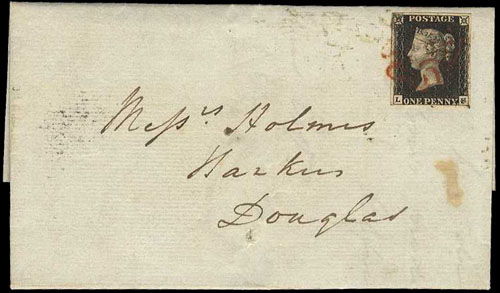 POSTAGE
ONE PENNY
L
Messrs Holmes
Douglas